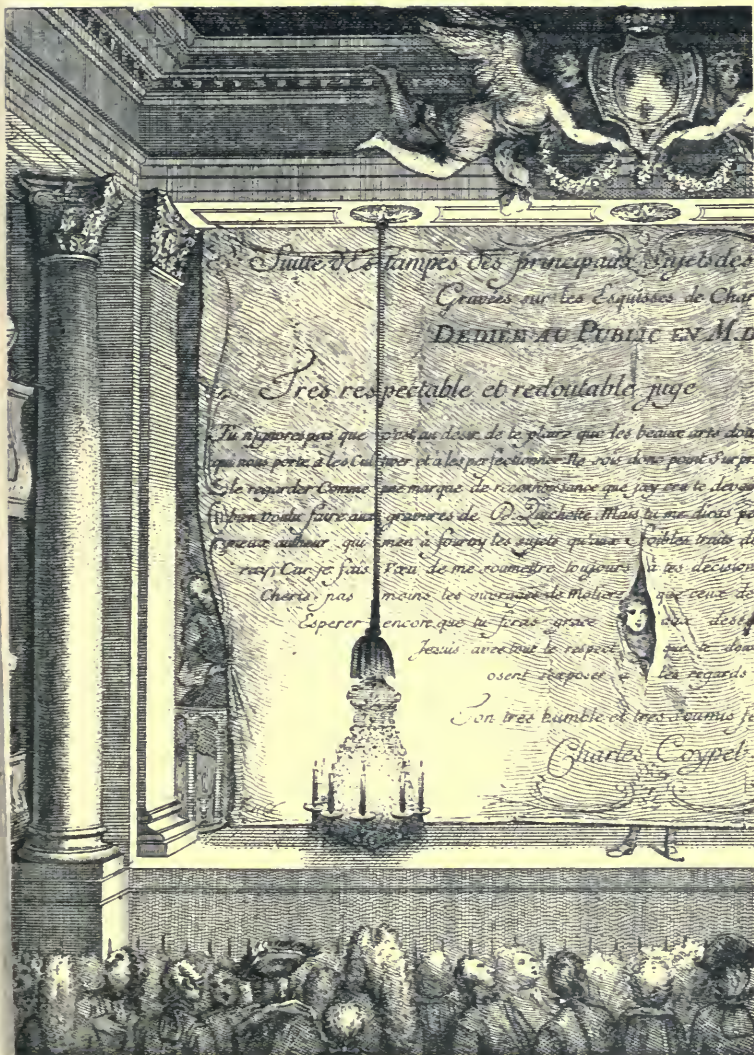 Suitte d'Estampes des principaux Sujets des
Gravées sur les Esquisses de Char
DEDIÉE AU PUBLIC EN M.D
Tres respectable et redoutable juge
Tu n'ignores pas que c'est au desir de te plaire que les beaux arts doiv
qui nous porte a les Cultiver et a les perfectionner Ne sois donc point Surpr
le regarder Comme une marque de reconnoissance que j'ay cru te devoir
bien voulu faire aux gravures de D. Quichotte Mais tu me diras
autheur qui m'en a fourny les sujets qu'aux foibles traits de
Car je fais Vœu de me soumettre toujours a tes decision
Cheris pas moins les ouvrages de Moliere que ceux de
Esperer encore que tu feras grace aux
Je suis avec tout le respect que te doiv
osent s'exposer a tes regards
Ton tres humble et tres soumis
Charles Coypel